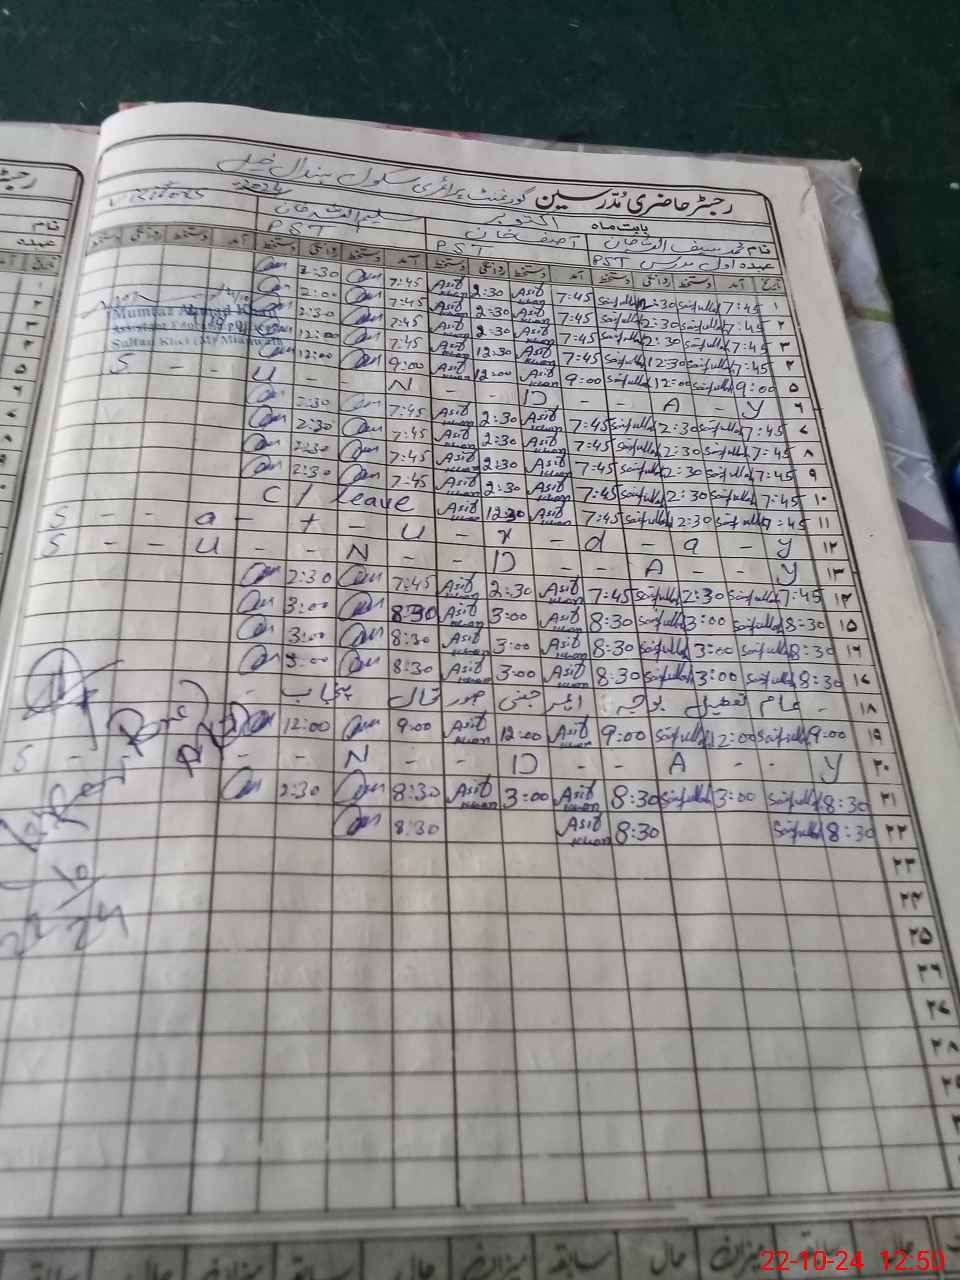 رجسٹر حاضری مدرسین گورنمنٹ پرائمری سکول ہندال خیل
بابت ماہ اکتوبر 2024
نام محمد سیف اللہ خان آصف خان سلیم اللہ خان Visitors
عہدہ اول مدرس PST PST PST
تاریخ آمد دستخط روانگی دستخط آمد دستخط روانگی دستخط آمد دستخط روانگی دستخط آمد دستخط روانگی دستخط
۱ 7:45 Saifullah 2:30 Saifullah 7:45 Asif Khan 2:30 Asif Khan 7:45 2:30
۲ 7:45 Saifullah 2:30 Saifullah 7:45 Asif Khan 2:30 Asif Khan 7:45 2:00
۳ 7:45 Saifullah 2:30 Saifullah 7:45 Asif Khan 2:30 Asif Khan 7:45 2:30
Mumtaz Ahmad Khan
۴ 7:45 Saifullah 12:30 Saifullah 7:45 Asif Khan 12:30 Asif Khan 7:45 12:00
Sultan Khel (M) Mianwali
۵ 9:00 Saifullah 12:00 Saifullah 9:00 Asif Khan 12:00 Asif Khan 9:00 12:00
۶ S - - U - - N - - D - - A - Y
۷ 7:45 Saifullah 2:30 Saifullah 7:45 Asif Khan 2:30 Asif Khan 7:45 2:30
۸ 7:45 Saifullah 2:30 Saifullah 7:45 Asif Khan 2:30 Asif Khan 7:45 2:30
۹ 7:45 Saifullah 2:30 Saifullah 7:45 Asif Khan 2:30 Asif Khan 7:45 2:30
۱۰ 7:45 Saifullah 2:30 Saifullah 7:45 Asif Khan 2:30 Asif Khan 7:45 2:30
۱۱ 7:45 Saifullah 12:30 Saifullah 7:45 Asif Khan 12:30 Asif Khan C/Leave
۱۲ S - - a - t - U - r - d - a - y
۱۳ S - - U - - N - - D - - A - - Y
۱۴ 7:45 Saifullah 2:30 Saifullah 7:45 Asif Khan 2:30 Asif Khan 7:45 2:30
۱۵ 8:30 Saifullah 3:00 Saifullah 8:30 Asif Khan 3:00 Asif Khan 8:30 3:00
۱۶ 8:30 Saifullah 3:00 Saifullah 8:30 Asif Khan 3:00 Asif Khan 8:30 3:00
۱۷ 8:30 Saifullah 3:00 Saifullah 8:30 Asif Khan 3:00 Asif Khan 8:30 3:00
۱۸ - عام تعطیل بوجہ ایمرجنسی صورتحال پنجاب -
۱۹ 9:00 Saifullah 12:00 Saifullah 9:00 Asif Khan 12:00 Asif Khan 9:00 12:00
۲۰ S - - N - - D - - A - - Y
۲۱ 8:30 Saifullah 3:00 Saifullah 8:30 Asif Khan 3:00 Asif Khan 8:30 2:30
۲۲ 8:30 Saifullah 8:30 Asif Khan 8:30
۲۳
۲۴
۲۵
۲۶
۲۷
۲۸
حال میزان سابقہ حال میزان سابقہ حال
22-10-24 12:50